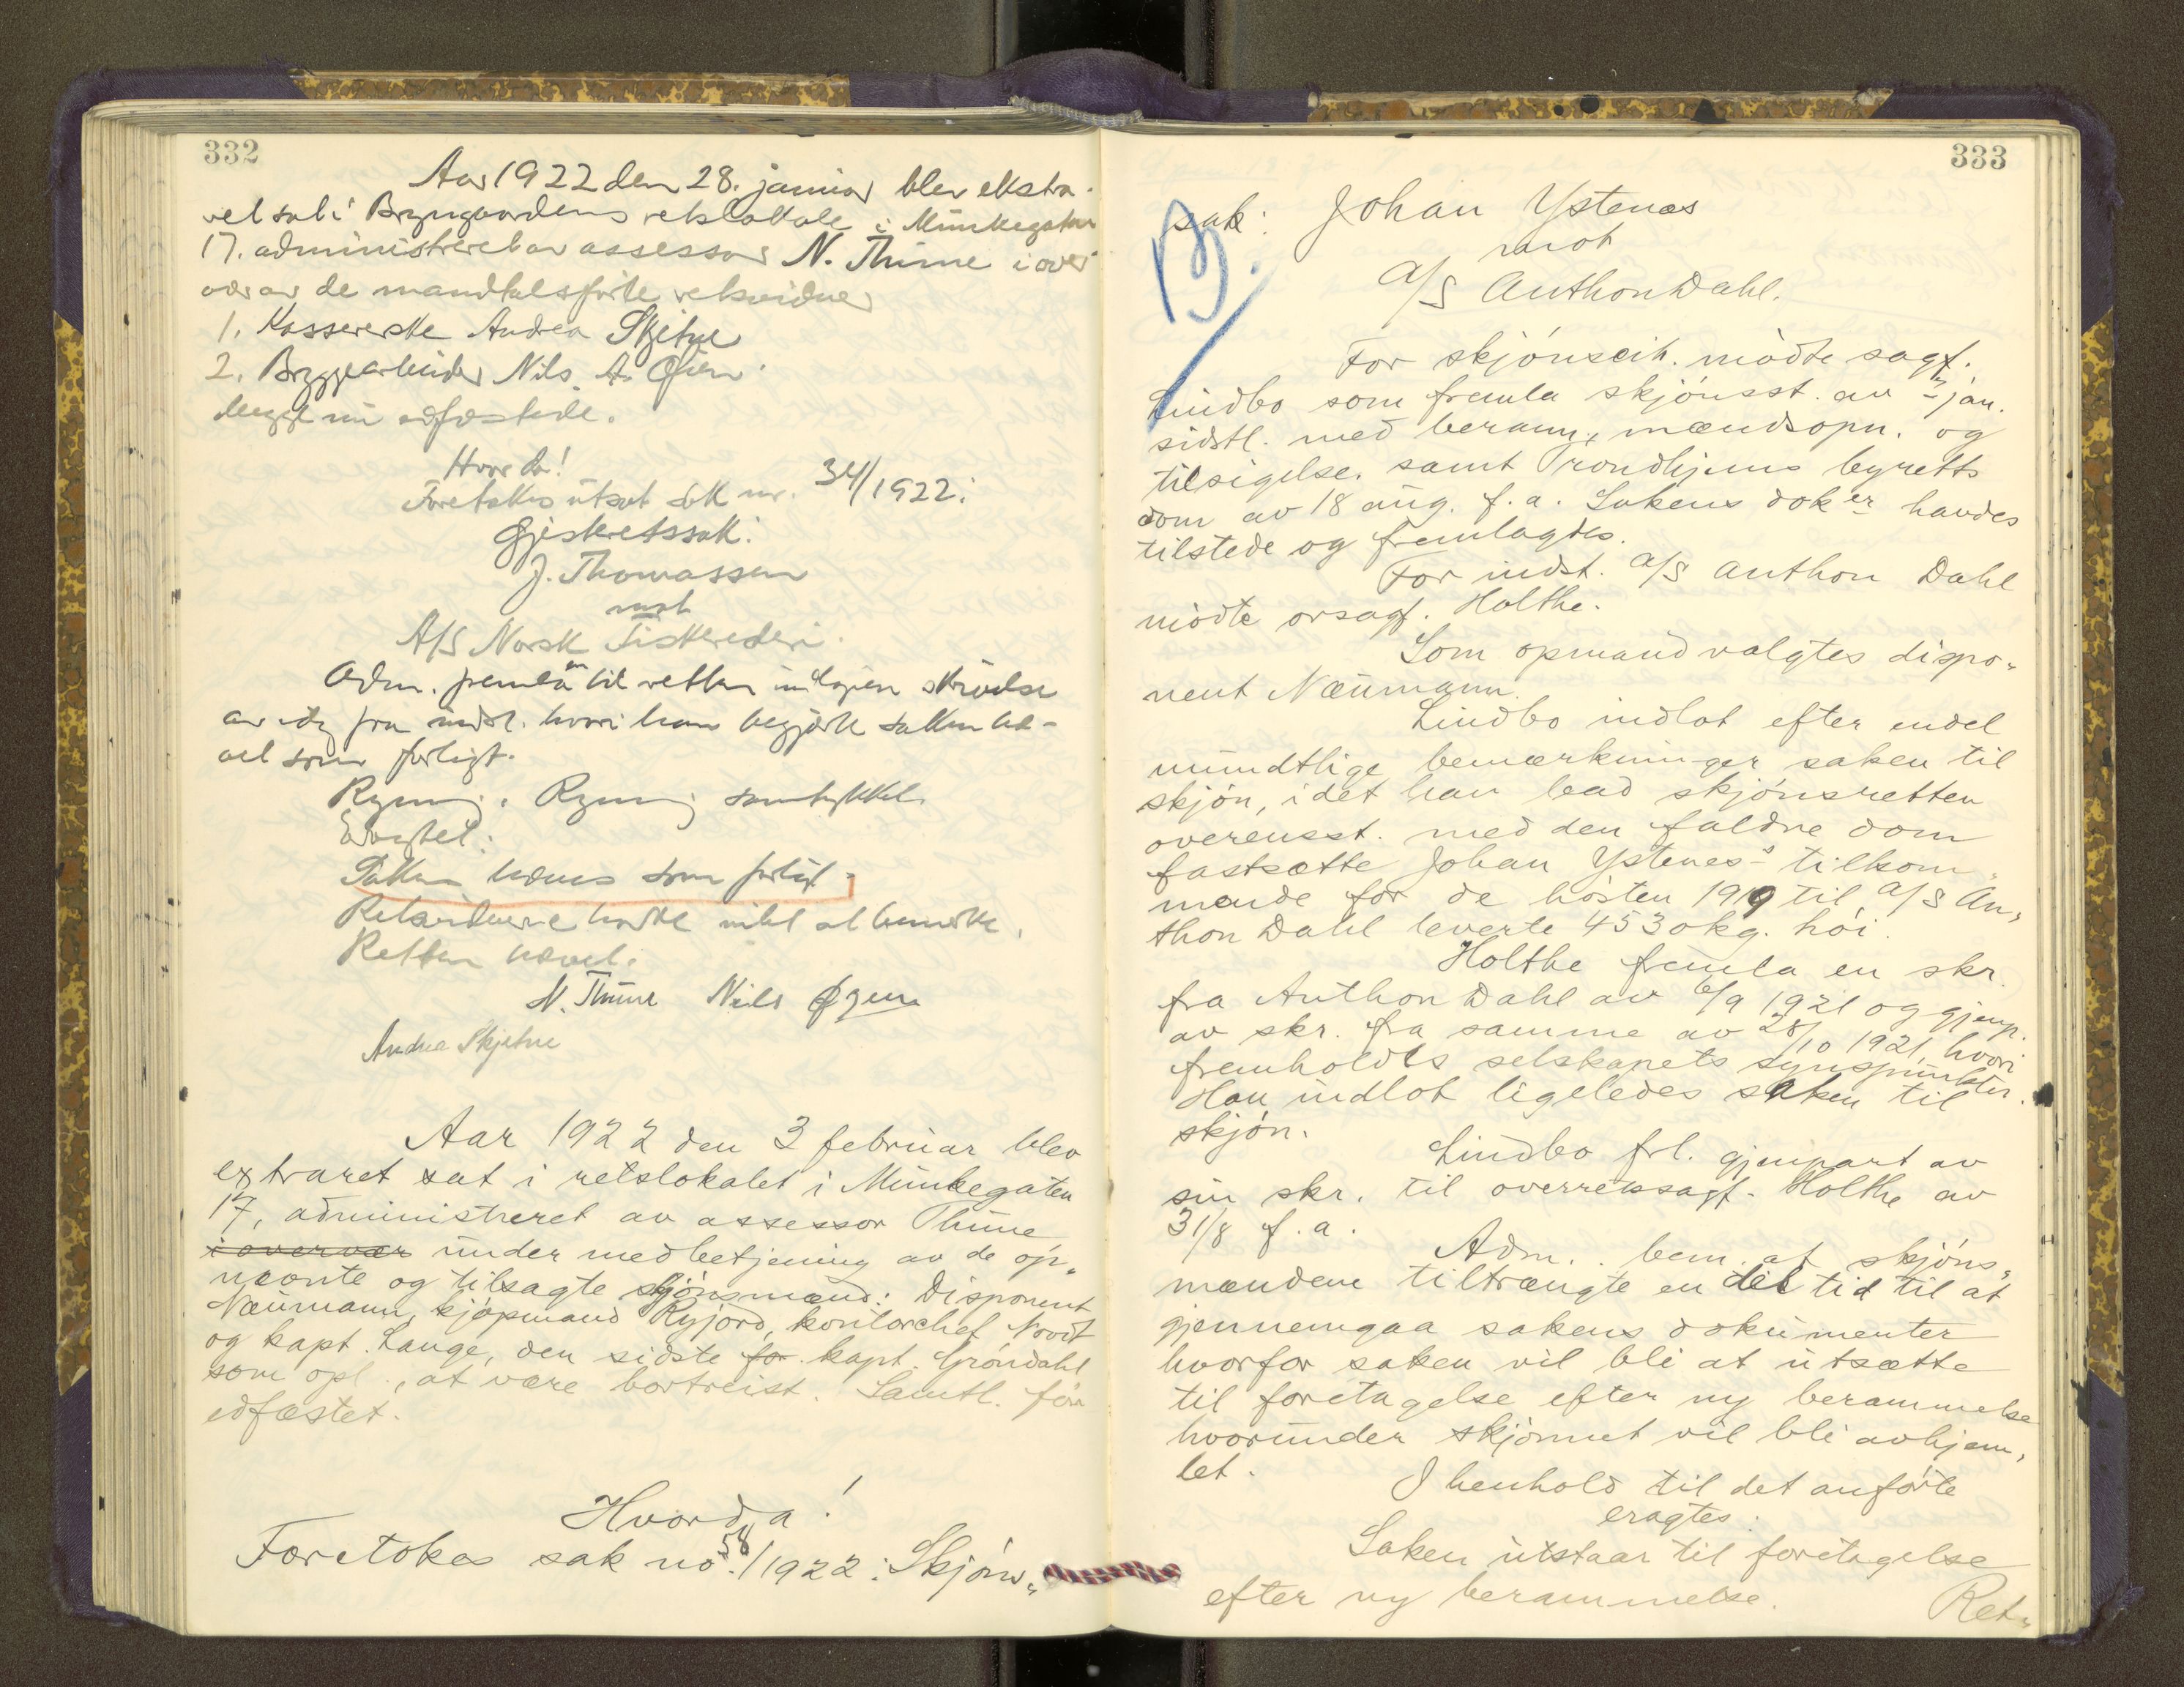 332
Aar 1922 den 28. januar blev ekstra-
ret sat i Bryngaardens retslokale i Munkegaten
17. administreret av assessor N. Thime i over-
vær av de mandtalsførte retsvidner
1. Kassererske Andrea Skjetne
2. Bryggearbeider Nils A. Øien
begge nu edfæstede.
Hvorda!
Foretokes utsat sak nr. 34/1922:
Gjesteretssak:
J. Thomassen
mot
A/S Norsk Fiskerederi.
Adm. fremla til retten en skrivelse
av idag fra indst. hvori han begjærte sakken hæ-
vet som forligt.
Ryning. Ryning samtykket.
Avsagdet:
Sakken hæves som forligt.
Retsvidnerne hadde intet at bemerke.
Retten hævet.
N. Thime Nils Øyen
Andrea Skjetne
Aar 1922 den 3 februar blev
extraret sat i retslokalet i Munkegaten
17, administreret av assessor Thime
i overvær under medbetjening av de op-
nævnte og tilsagte skjønsmænd: Disponent
Næumann, kjøpmand Ryjord, kontorchef Kvodt
og kapt. Lange, den sidste for kapt. Grøndahl
som opl., at være bortreist. Samtl. før
edfæstet.
Hvorda!
Foretokes sak no. 58/1922: Skjøns-
333
sak: Johan Ystenæs
mot
A/S Anthon Dahl.
For skjønscit. mødte sagf.
Lindbo som fremla skjønsst. av jan.
sidstl. med beramm., mændsopn. og
tilsigelse, samt Trondhjems byretts
dom av 18 aug. f.a. Sakens doker havdes
tilstede og fremlagdes.
For indst. A/S Anthon Dahl
mødte orsagf. Holthe.
Som opmand valgtes dispo-
nent Næumann.
Lindbo indlot efter endel
mundtlige bemærkninger saken til
skjøn, idet han bad skjønsretten
overensst. med den faldne dom
fastsætte Johan Ystenes's tilkom-
mende for de høsten 1919 til A/S An-
thon Dahl leverte 4530 kg. høi.
Holthe fremla en skr.
fra Anthon Dahl av 6/9 1921 og gjenp.
av skr. fra samme av 28/10 1921, hvori
fremholdes selskapets synspunkter.
Han indlot ligeledes saken til
skjøn.
Lindbo frl. gjenpart av
sin skr. til overretssagf. Holthe av
31/8 f.a.
Adm. bem. at skjøns-
mændene tiltrængte en del tid til at
gjennemgaa sakens dokumenter
hvorfor saken vil bli at utsætte
til foretagelse efter ny berammelse
hvorunder skjønnet vil bli avhjem-
let.
I henhold til det anførte
eragtes:
Saken utstaar til foretagelse
efter ny berammelse.
Ret-